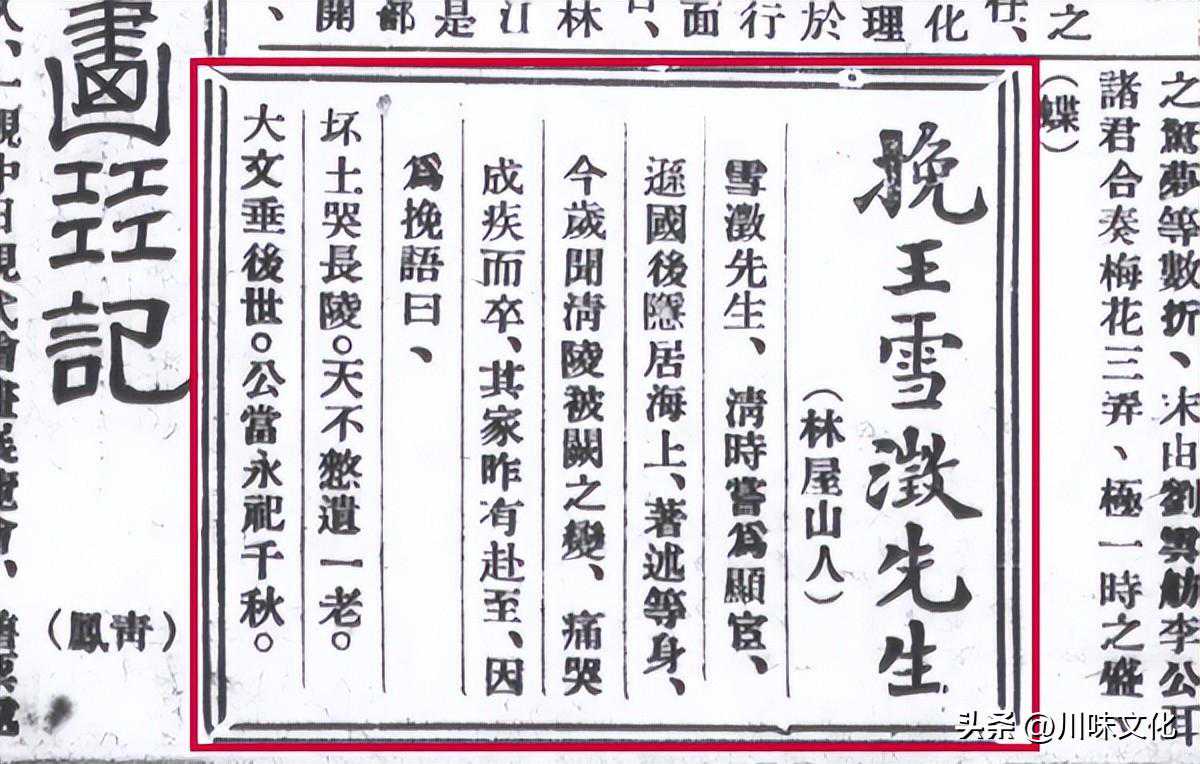 之
化
理
於
行
面
林
是
都
開
之驚夢等數折、末由劉李公
諸君合奏梅花三弄、極一時之盛
（蝶）
挽王雪澂先生
（林屋山人）
雪澂先生、清時嘗爲顯宦、
遜國後隱居海上、著述等身、
今歲聞清陵被闕之變、痛哭
成疾而卒、其家昨有赴至、因
爲挽語曰、
坏土哭長陵。天不憗遺一老。
大文垂後世。公當永祀千秋。
㠭記
（青鳳）
觀中日現代繪畫展覽會、
头条 @川味文化